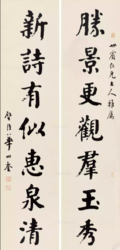 勝景更觀羣玉秀
新詩有似惠泉清